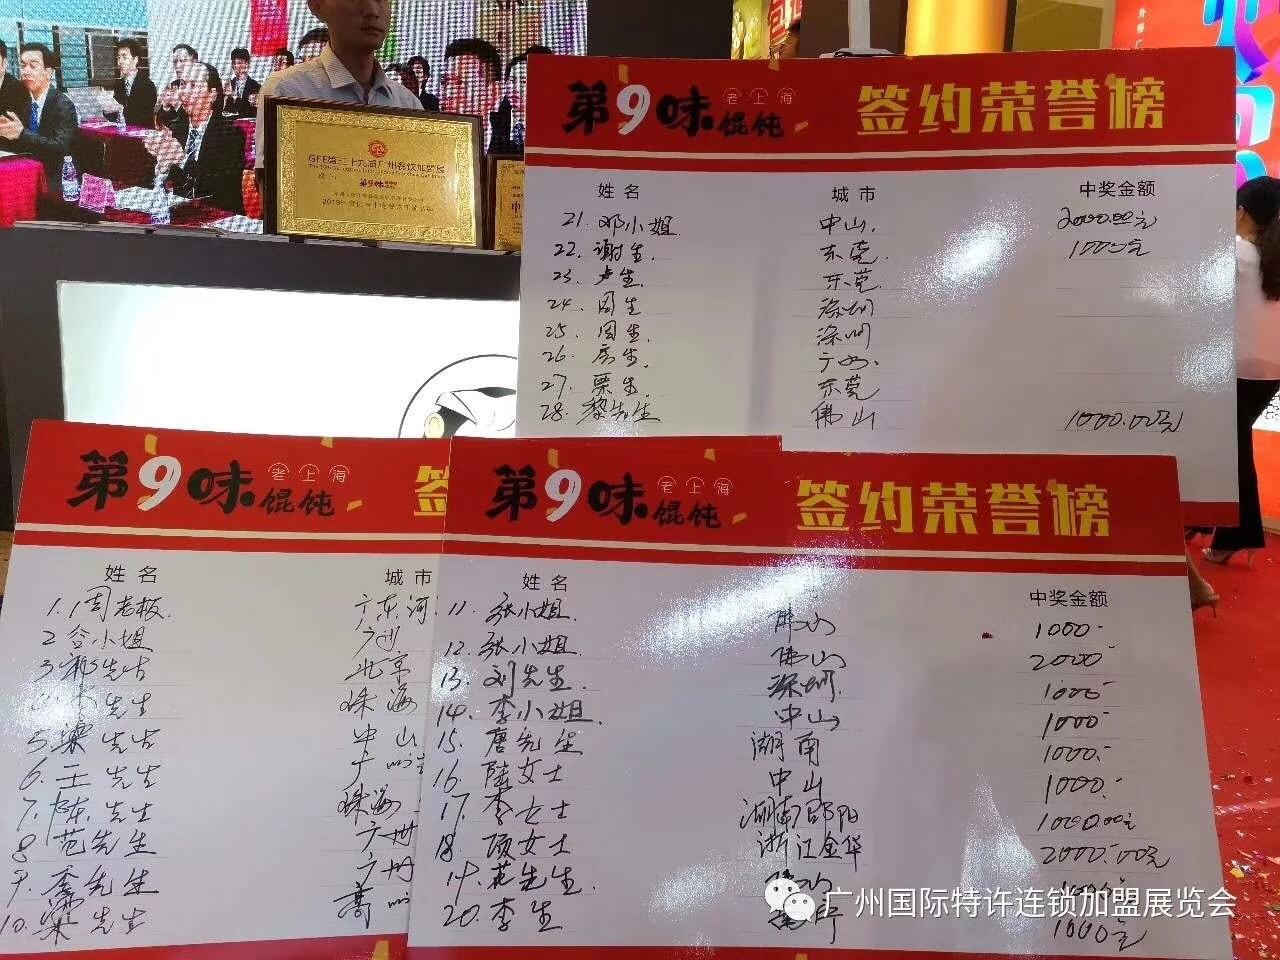 GFE第三十九届广州餐饮加盟展
第9味
第9味 老上海 馄饨 签约荣誉榜
姓名 城市 中奖金额
21. 邓小姐 中山. 2000.00元
22. 谢生. 东莞. 1000元
23. 卢生. 东莞.
24. 周生 深圳
25. 周生. 深圳
26. 房生. 广州.
27. 栗生. 东莞
28. 黎先生 佛山 1000.00元
第9味 老上海 馄饨 签
姓名 城市
1. 周老板. 广东河
2 谷小姐 广州
3 郭先生 北京
先生 珠海
5. 梁先生 中山
6. 王先生 广州
7. 陈.先生 珠海
8 范先生 广州
9. 李先生 广州
10. 梁先生 高州
第9味 老上海 馄饨 签约荣誉榜
姓名 中奖金额
11. 张小姐. 佛山 1000-
12. 张小姐. 佛山 2000-
13. 刘先生. 深圳. 1000-
14. 李小姐. 中山 1000-
15. 唐先生 湖南 1000.-
16. 陆女士 中山 1000.-
17. 李女士 湖南邵阳 1000.00元
18. 顾女士 浙江金华 2000.00元
19. 范先生.
20. 李生. 1000元
广州国际特许连锁加盟展览会